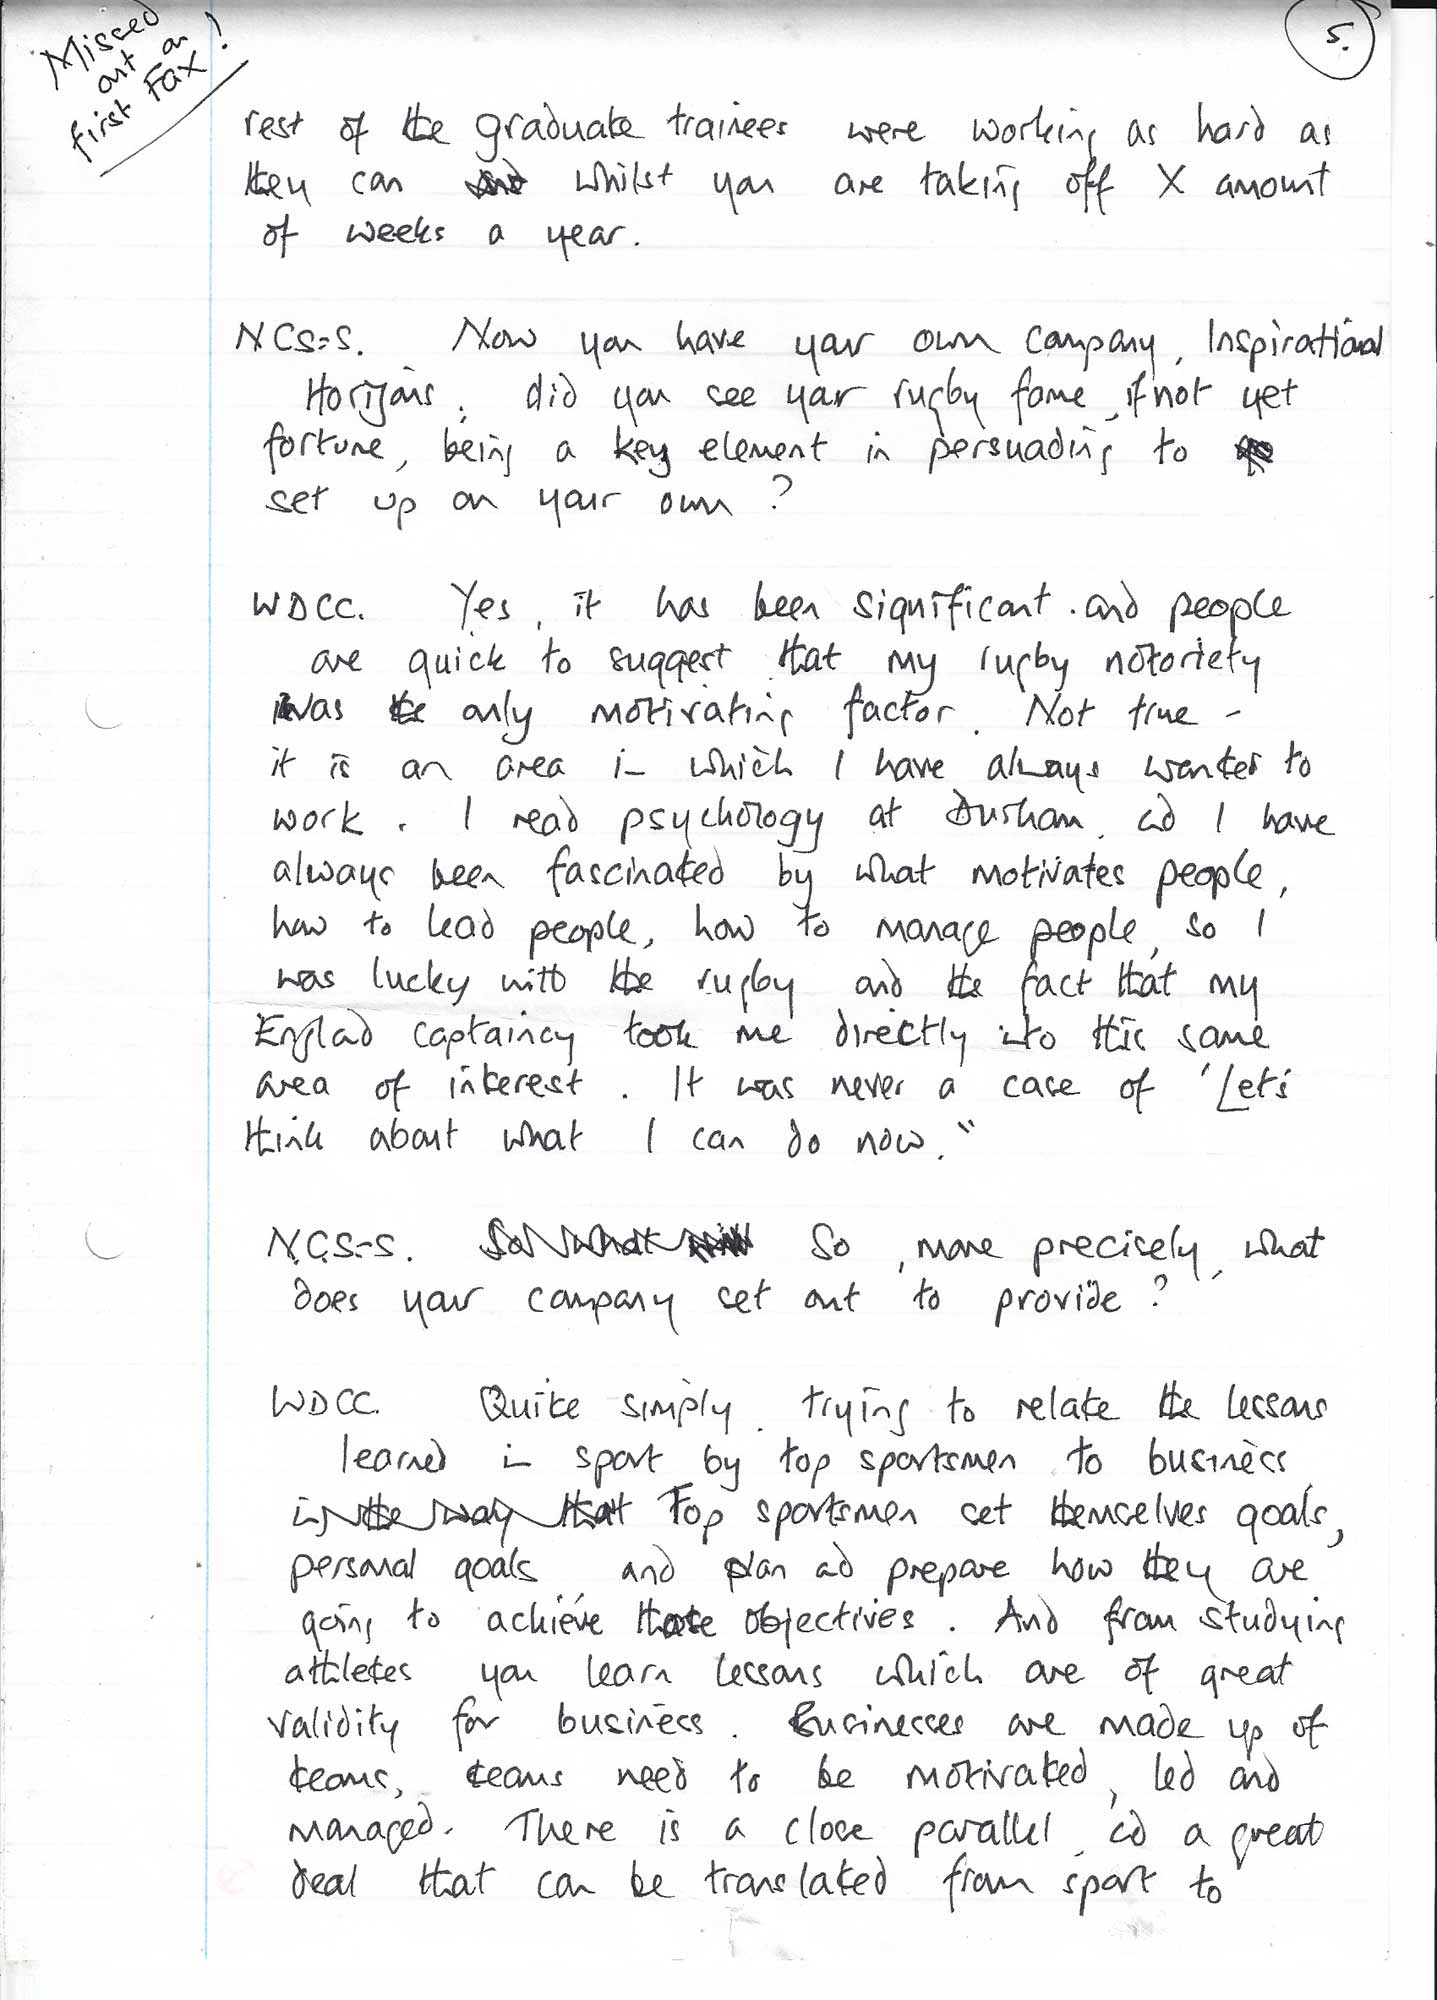 Missed
out on
first Fax!
5.
rest of the graduate trainees were working as hard as
they can and whilst you are taking off X amount
of weeks a year.
NCS-S. Now you have your own company, Inspirational
Horizons, did you see your rugby fame, if not yet
fortune, being a key element in persuading to
set up on your own?
WDCC. Yes, it has been significant and people
are quick to suggest that my rugby notoriety
was the only motivating factor. Not true -
it is an area in which I have always wanted to
work. I read psychology at Durham, and I have
always been fascinated by what motivates people,
how to lead people, how to manage people, so I
was lucky with the rugby and the fact that my
England captaincy took me directly into this same
area of interest. It was never a case of 'Let's
think about what I can do now."
N.C.S-S. So what So, more precisely, what
does your company set out to provide?
WDCC. Quite simply, trying to relate the lessons
learned in sport by top sportsmen to business
in the way that Top sportsmen set themselves goals,
personal goals and plan and prepare how they are
going to achieve those objectives. And from studying
athletes you learn lessons which are of great
validity for business. Businesses are made up of
teams, teams need to be motivated, led and
managed. There is a close parallel, and a great
deal that can be translated from sport to